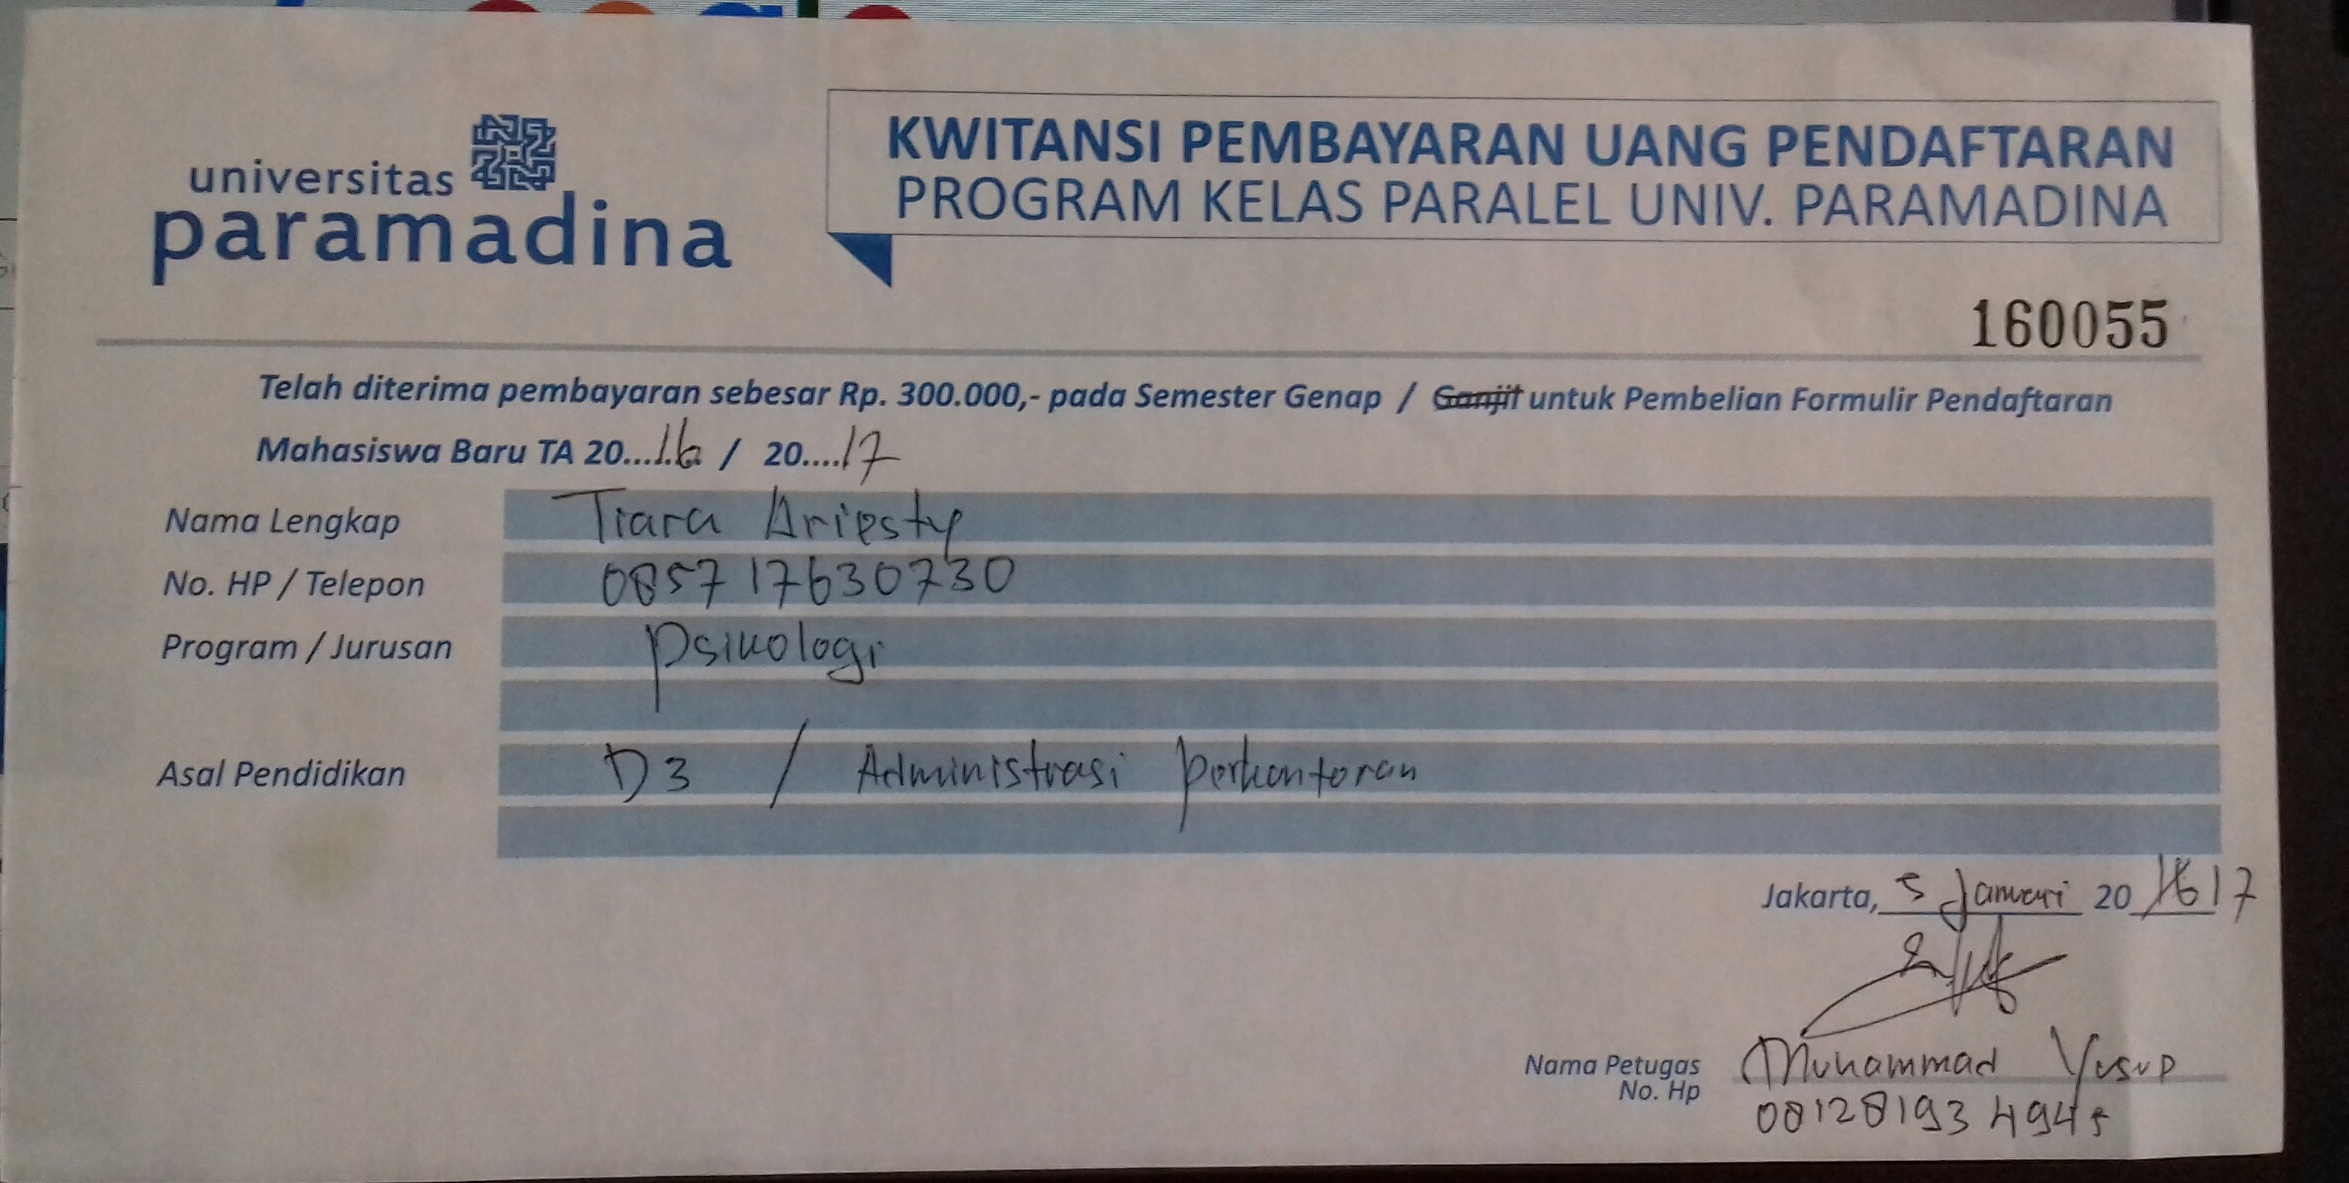 universitas
paramadina
KWITANSI PEMBAYARAN UANG PENDAFTARAN
PROGRAM KELAS PARALEL UNIV. PARAMADINA
160055
Telah diterima pembayaran sebesar Rp. 300.000,- pada Semester Genap / Ganjil untuk Pembelian Formulir Pendaftaran
Mahasiswa Baru TA 20...16 / 20....17
Nama Lengkap Tiara Ariesty
No. HP / Telepon 085717630730
Program / Jurusan Psikologi
Asal Pendidikan D3 / Administrasi perkantoran
Jakarta, 5 Januari 20 16 17
Nama Petugas Muhammad Yusup
No. Hp 081281934945